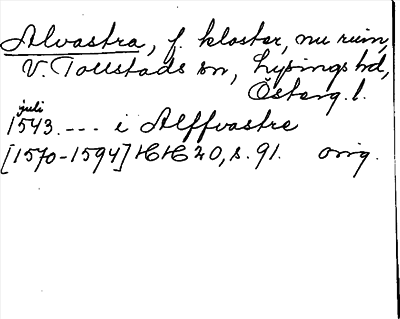 Alvastra, f. kloster, nu ruin,
V. Tollstads sn, Lysings hd,
Österg. l.
juli
1543. --- i Alffvastre
[1570-1594] HH 20, s. 91. orig.